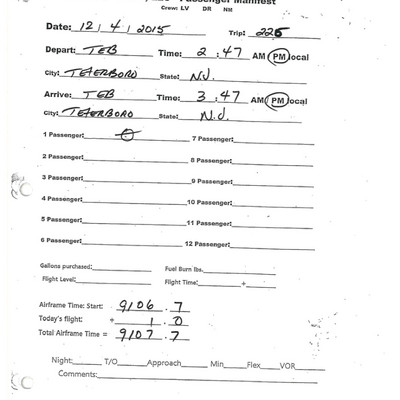 Passenger Manifest
Crew: LV DR NM
Date: 12 / 4 / 2015 Trip: 226
Depart: TEB Time: 2 : 47 AM PM local
City: TETERBORO State: N.J.
Arrive: TEB Time: 3 : 47 AM PM local
City: TETERBORO State: N.J.
1 Passenger: 0 7 Passenger:
2 Passenger: 8 Passenger:
3 Passenger: 9 Passenger:
4 Passenger: 10 Passenger:
5 Passenger: 11 Passenger:
6 Passenger: 12 Passenger:
Gallons purchased: Fuel Burn lbs.
Flight Level: Flight Time: +
Airframe Time: Start: 9106 . 7
Today's flight: + 1 . 0
Total Airframe Time = 9107 . 7
Night: T/O Approach Min Flex VOR
Comments: